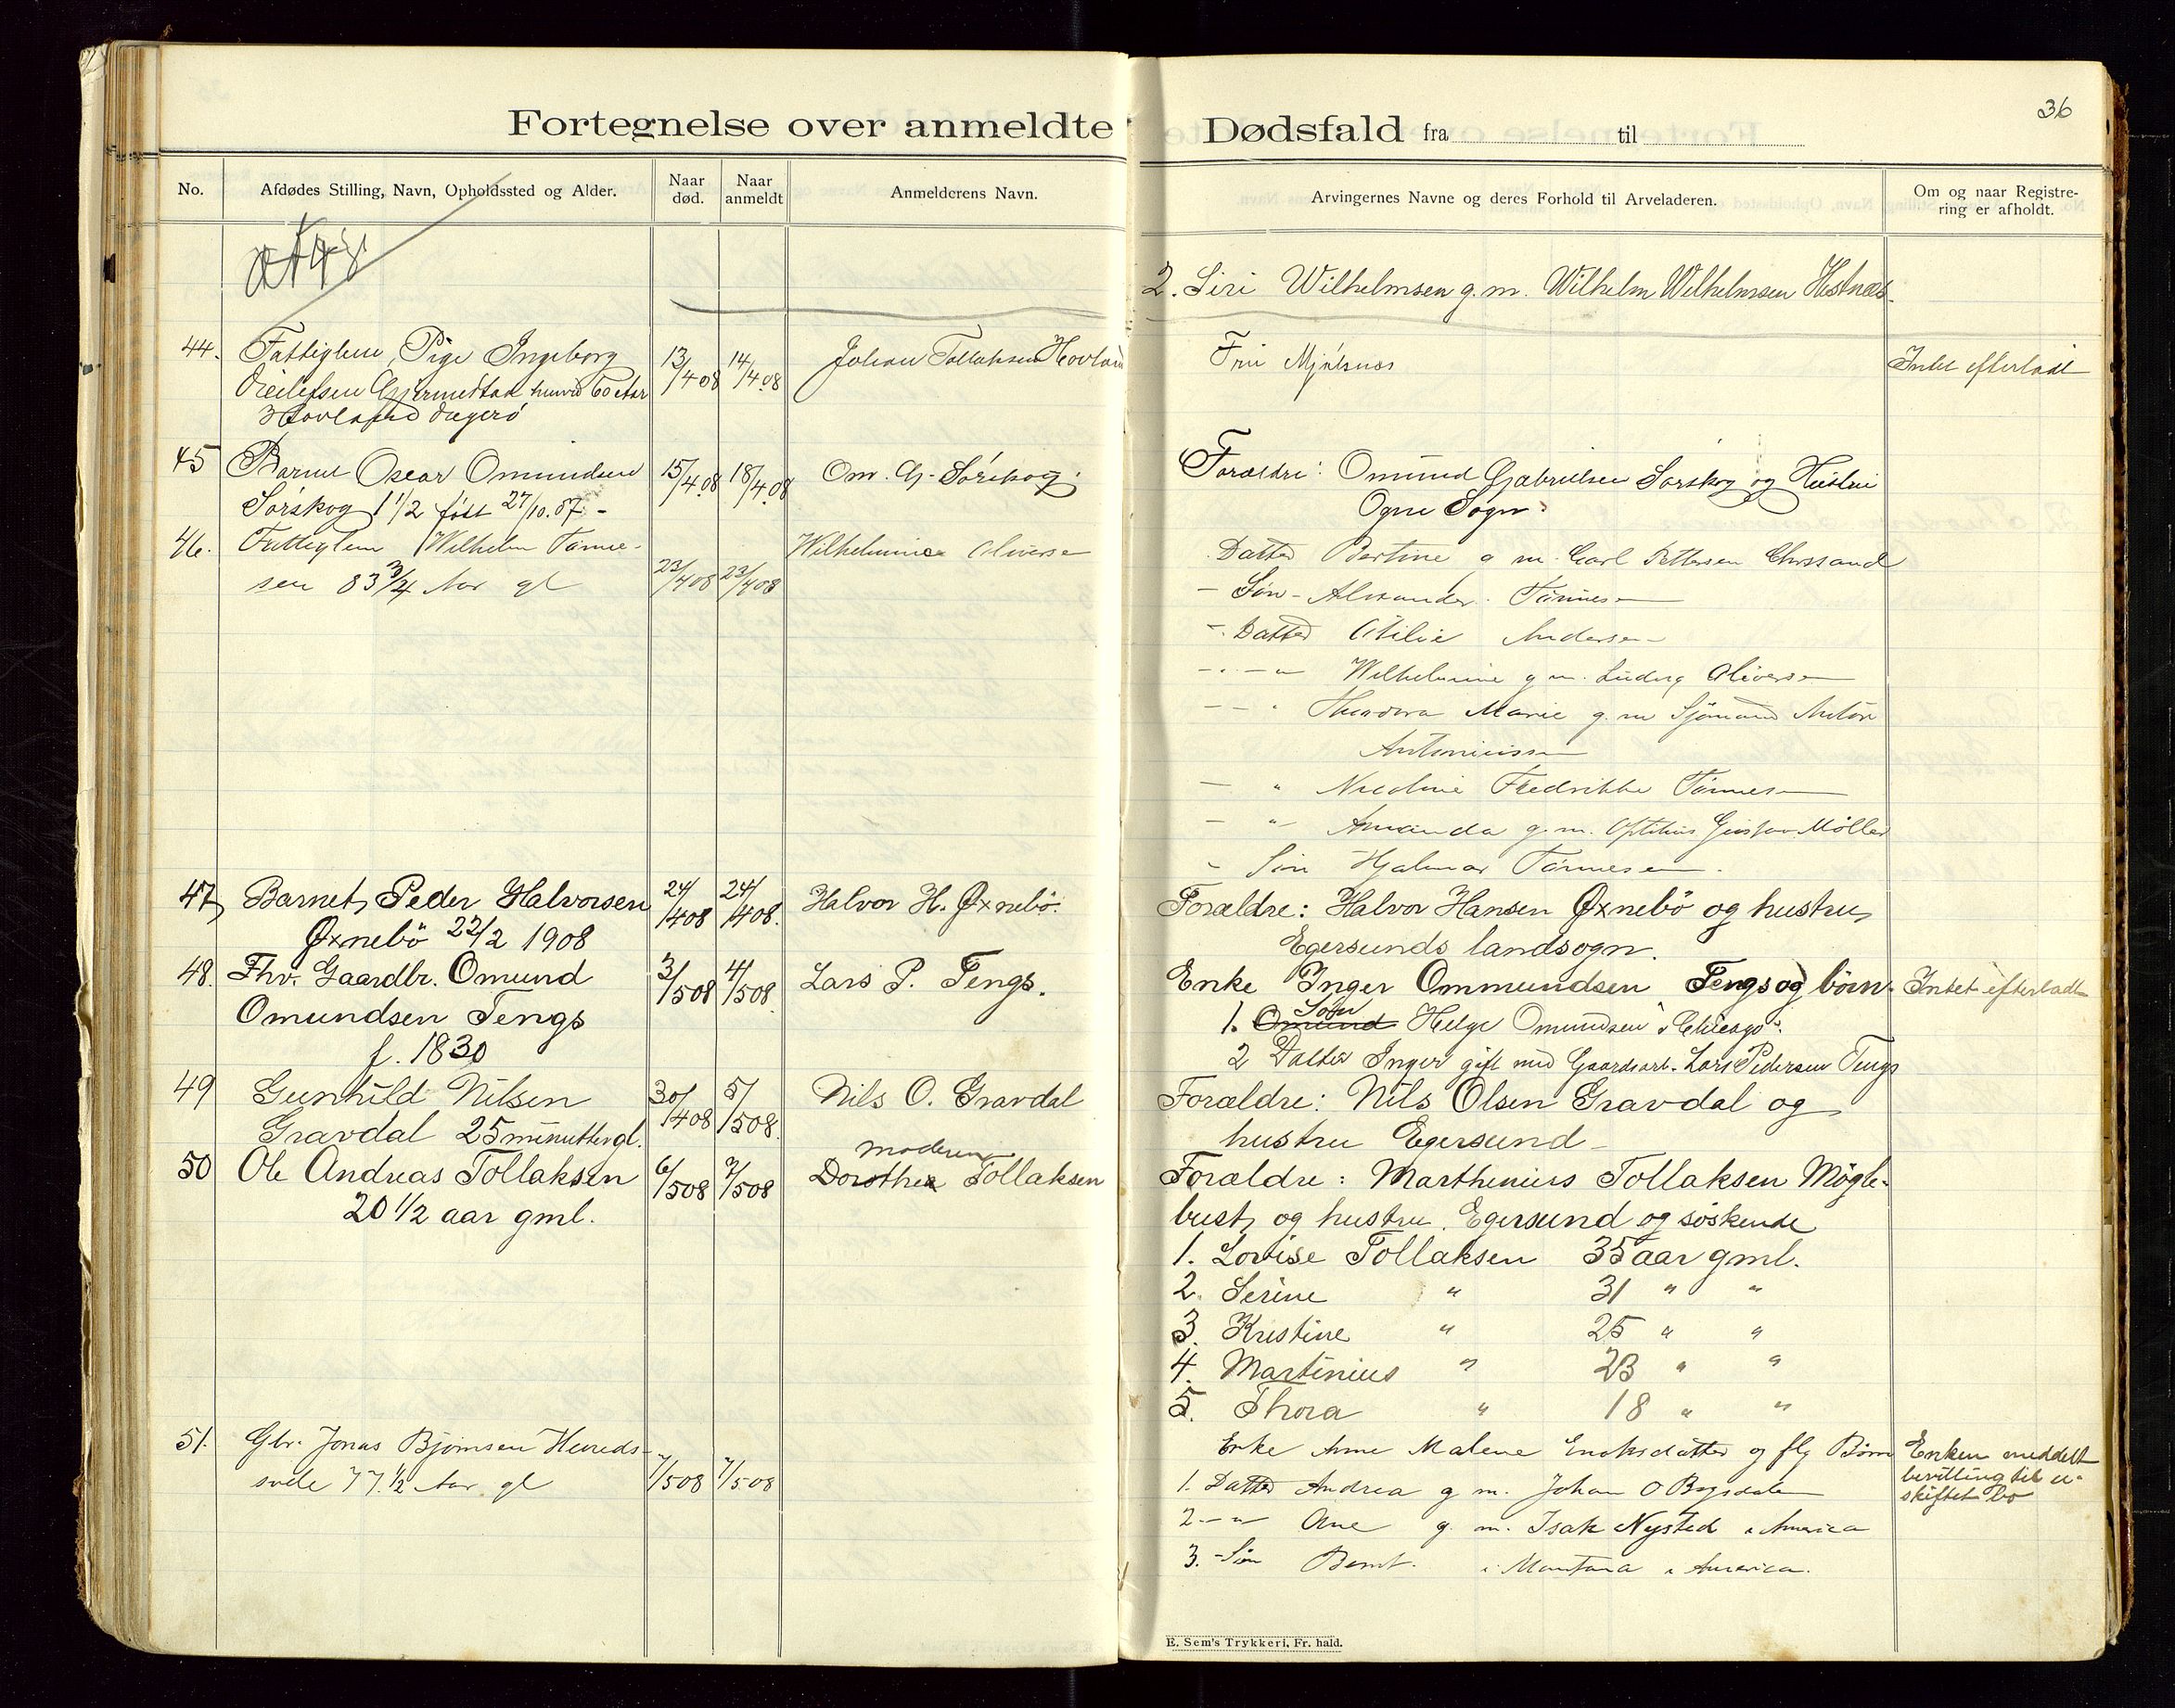 36
Fortegnelse over anmeldte Dødsfald fra til
No.
Afdødes Stilling, Navn, Opholdssted og Alder.
Naar død.
Naar anmeldt
Anmelderens Navn.
Arvingernes Navne og deres Forhold til Arveladeren.
Om og naar Registrering er afholdt.
2. Siri Wilhelmsen g.m. Wilhelm Wilhelmsen Hestnæs
44. Fattiglem, Pige Ingeborg 13/4 08 14/4 08 Johan Tollaksen Hovland
60 Aar
Hovland
Intet efterladt
45 Barnet Oscar Omundsen 15/4 08 18/4 08 Om. G. Sörskog
Sörskog 1 1/2 født 27/10. 07. -
Forældre: Omund Gabrielsen Sörskog og Hustru
Ogne Sogn.
46. Fattiglem Wilhelm Tönne-
sen 83 3/4 Aar gl 23/4 08 23/4 08 Wilhelmine Oliversen
Datter Bertine g m. Carl Pettersen Chrssand
- Søn - Alexander Tönnesen
- Datter Otilie Andersen
- - " Wilhelmine g m. Ludvig Oliversen
- - " Theodora Marie g. m Sjömand Anton
Antoniussen
- " Nicoline Fredrikke Tönnesen
- " Amanda g. m. Optikus Gustav Möller
- Søn Hjalmar Tönnesen.
47, Barnet, Peder Halvorsen 24/4 08 24/4 08. Halvor H. Øxnebö.
Øxnebö 22/2 1908
Forældre: Halvor Hansen Øxnebö og hustru,
Egersunds landsogn.
48. Fhv. Gaardbr. Omund 3/5 08 4/5 08 Lars P. Tengs.
Omundsen Tengs
f. 1830
Enke Inger Ommundsen Tengs og börn. Intet efterladt
1. Omund Søn Helge Omundsen i Chicago.
2 Datter Inger gift med Gaardsarb. Lars Pedersen Tengs
49 Gunhild Nilsen 30/4 08 5/5 08 Nils O. Gravdal
Gravdal 25 minutter gl.
Forældre: Nils Olsen Gravdal og
hustru Egersund -
50 Ole Andreas Tollaksen 6/5 08 7/5 08 moderen Dorothea Tollaksen
20 1/2 aar gml.
Forældre: Marthinius Tollaksen Mögle-
bust, og hustru, Egersund og söskende
1. Lovise Tollaksen 35 aar gml.
2. Serine " 31 " "
3. Kristine " 25 " "
4. Martinius " 23 " "
5. Thora " 18 " "
51. Gbr. Jonas Bjørnsen Hereds-
vele 77 1/2 Aar gl 7/5 08 7/5 08
Enke Anne Malene Enoksdatter og flg Børn
1. Datter Andrea g m. Johan O
2 - " Ane g. m. Isak Nysted i America
3. - Søn Bernt i Montana i America.
Enken meddelt
bevilling til u-
skiftet bo
E. Sem's Trykkeri, Fr. hald.